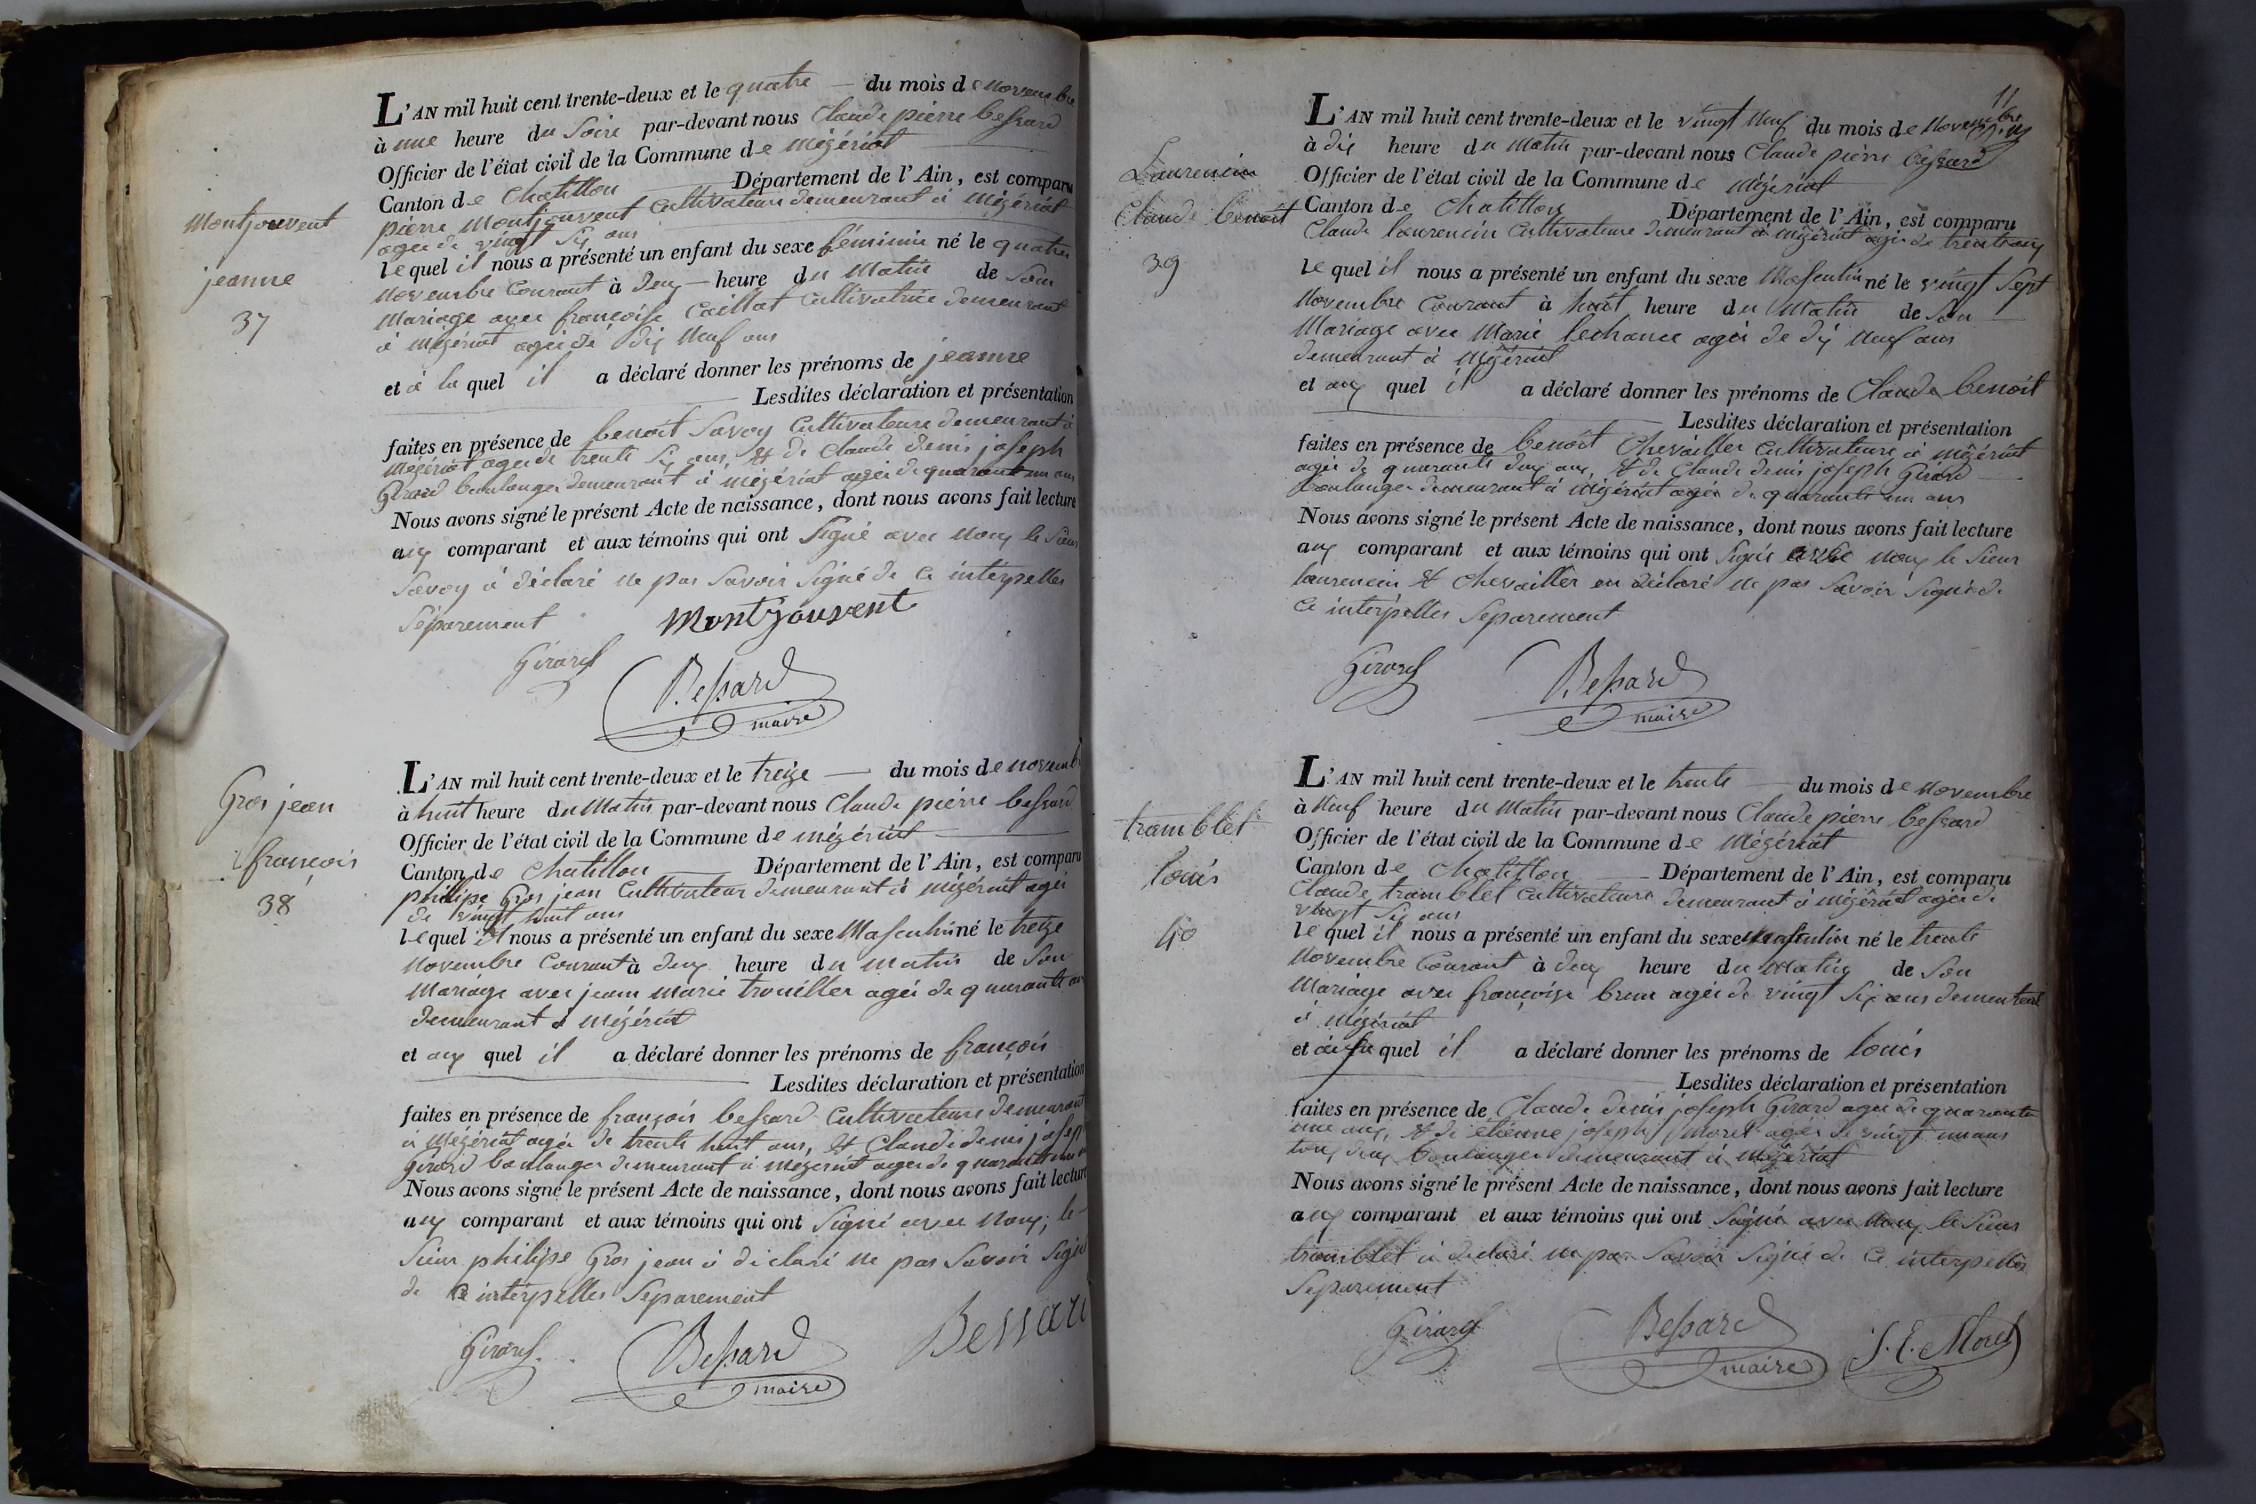 Montjouvent
jeanne
37
L'AN mil huit cent trente-deux et le quatre du mois de Novembre
à une heure du Soire par-devant nous Claude pierre bessard
Officier de l'état civil de la Commune de mézériat
Canton de Chatillon Département de l'Ain, est comparu
pierre Montjouvent Cultivateur demeurant à Mézériat
agée de vingt Six ans
lequel il nous a présenté un enfant du sexe féminin né le quatre
Novembre Courant à deux heure du Matin de Son
Mariage avec françoise Caillat Cultivatrice demeurant
à Mézériat agée de dix Neuf ans
et à la quel il a déclaré donner les prénoms de jeanne
Lesdites déclaration et présentation
faites en présence de benoit Savoy Cultivateure demeurant à
Mézériat agée de trente Six ans, & de Claude denis joseph
Girard boulanger demeurant à Mézériat agée de quarante un ans
Nous avons signé le présent Acte de naissance, dont nous avons fait lecture
aux comparant et aux témoins qui ont Signé avec Nous le Sieur
Savoy à déclaré ne pas Savoir Signé de ce interpelles
Séparement
Montjouvent
Girard
Bessard
maire
Gros jean
françois
38
L'AN mil huit cent trente-deux et le treize du mois de novemb
à huit heure du Matin par-devant nous Claude pierre bessard
Officier de l'état civil de la Commune de mézériat
Canton de Chatillon Département de l'Ain, est comparu
philipe Gros jean Cultivateur demeurant à mézériat agée
de vingt huit ans
lequel il nous a présenté un enfant du sexe Masculin né le treize
Novembre Courant à deux heure du matin de Son
Mariage avec jeanne Marie trouiller agée de quarante an
demeurant à Mézériat
et aux quel il a déclaré donner les prénoms de françois
Lesdites déclaration et présentation
faites en présence de françois bessard Cultivateure demeurant
à Mézériat agée de trente huit ans, & Claude denis josep
Girard boulanger demeurant à mézériat agée de quarante un
Nous avons signé le présent Acte de naissance, dont nous avons fait lecture
aux comparant et aux témoins qui ont Signé avec Nous; le
Sieur philipe Gros jean à déclaré ne pas Savoir Signé
de ce interpelles Séparement
Girard
Bessard
maire
Bessard
11
Laurencin
Claude benoit
39
L'AN mil huit cent trente-deux et le vingt Neuf du mois de Novembre
à dix heure du Matin par-devant nous Claude pierre bessard
Officier de l'état civil de la Commune de Mézériat
Canton de Chatillon Département de l'Ain, est comparu
Claude laurencin Cultivateure demeurant à mézériat agée de
lequel il nous a présenté un enfant du sexe Masculin né le vingt Sept
Novembre Courant à huit heure du Matin de Son
Mariage avec Marie lechance agée de dix Neuf ans
demeurant à Mézériat
et aux quel il a déclaré donner les prénoms de Claude benoit
Lesdites déclaration et présentation
faites en présence de benoit Chevailler Cultivateure à mézériat
agée de quarante deux ans, & de Claude denis joseph Girard
boulanger demeurant à Mézériat agée de quarante un ans
Nous avons signé le présent Acte de naissance, dont nous avons fait lecture
aux comparant et aux témoins qui ont Signé avec Nous le Sieur
laurencin & Chevailler on déclaré ne pas Savoir Signé de
ce interpelles Séparement
Girard
Bessard
maire
tramblet
louis
40
L'AN mil huit cent trente-deux et le trente du mois de Novembre
à Neuf heure du Matin par-devant nous Claude pierre bessard
Officier de l'état civil de la Commune de Mézériat
Canton de Chatillon Département de l'Ain, est comparu
Claude tramblet Cultivateure demeurant à mézériat agée de
vingt Six ans
lequel il nous a présenté un enfant du sexe Masculin né le trente
Novembre Courant à deux heure du Matin de Son
Mariage avec françoise brun agée de vingt Six ans demeurant
à Mézériat
et quel il a déclaré donner les prénoms de louis
Lesdites déclaration et présentation
faites en présence de Claude denis joseph Girard agée de quarante
une ans, & de étienne joseph Morel agée de vingt un ans
tous deux boulanger demeurant à Mézériat
Nous avons signé le présent Acte de naissance, dont nous avons fait lecture
aux comparant et aux témoins qui ont Signé avec Nous le Sieur
tramblet à déclaré ne pas Savoir Signé de ce interpelles
Séparement
Girard
Bessard
maire
J. E. Morel